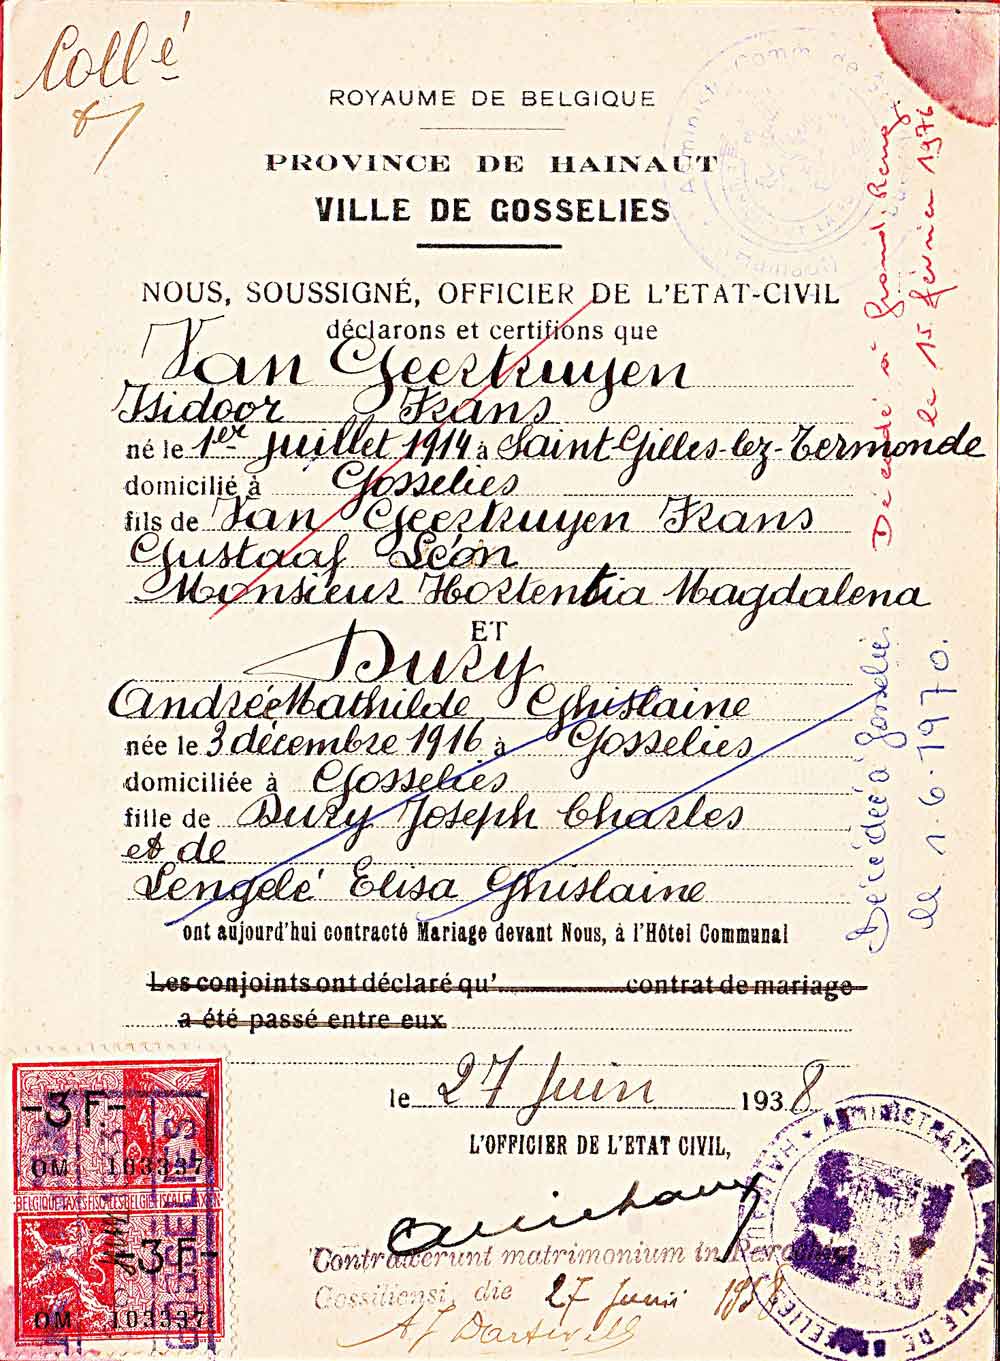 Collé
ROYAUME DE BELGIQUE
PROVINCE DE HAINAUT
VILLE DE GOSSELIES
NOUS, SOUSSIGNÉ, OFFICIER DE L'ETAT-CIVIL
déclarons et certifions que
Van Geertruyen
Isidoor Frans
né le 1er juillet 1914 à Saint-Gilles-lez-Termonde
domicilié à Gosselies
fils de Van Geertruyen Frans
Gustaaf Léon
Monsieur Hortentia Magdalena
ET
Dury
Andrée Mathilde Ghislaine
née le 3 décembre 1916 à Gosselies
domiciliée à Gosselies
fille de Dury Joseph Charles
et de
Lengelé Elisa Ghislaine
ont aujourd'hui contracté Mariage devant Nous, à l'Hôtel Communal
Les conjoints ont déclaré qu' contrat de mariage
a été passé entre eux
le 27 Juin 1938
L'OFFICIER DE L'ETAT CIVIL,
Contraxerunt matrimonium in
Gossiliensi, die 27 Junii 1938
Décédé à Grand-Reng
le 15 février 1976
Décédée à Gosselies
le 1-6-1970.
-3 F.-
OM 103337
BELGIQUE-TAXES FISCALES BELGIË-FISCALE TAXEN
-3 F-
OM 103337
ADMINISTRATION
VILLE DE